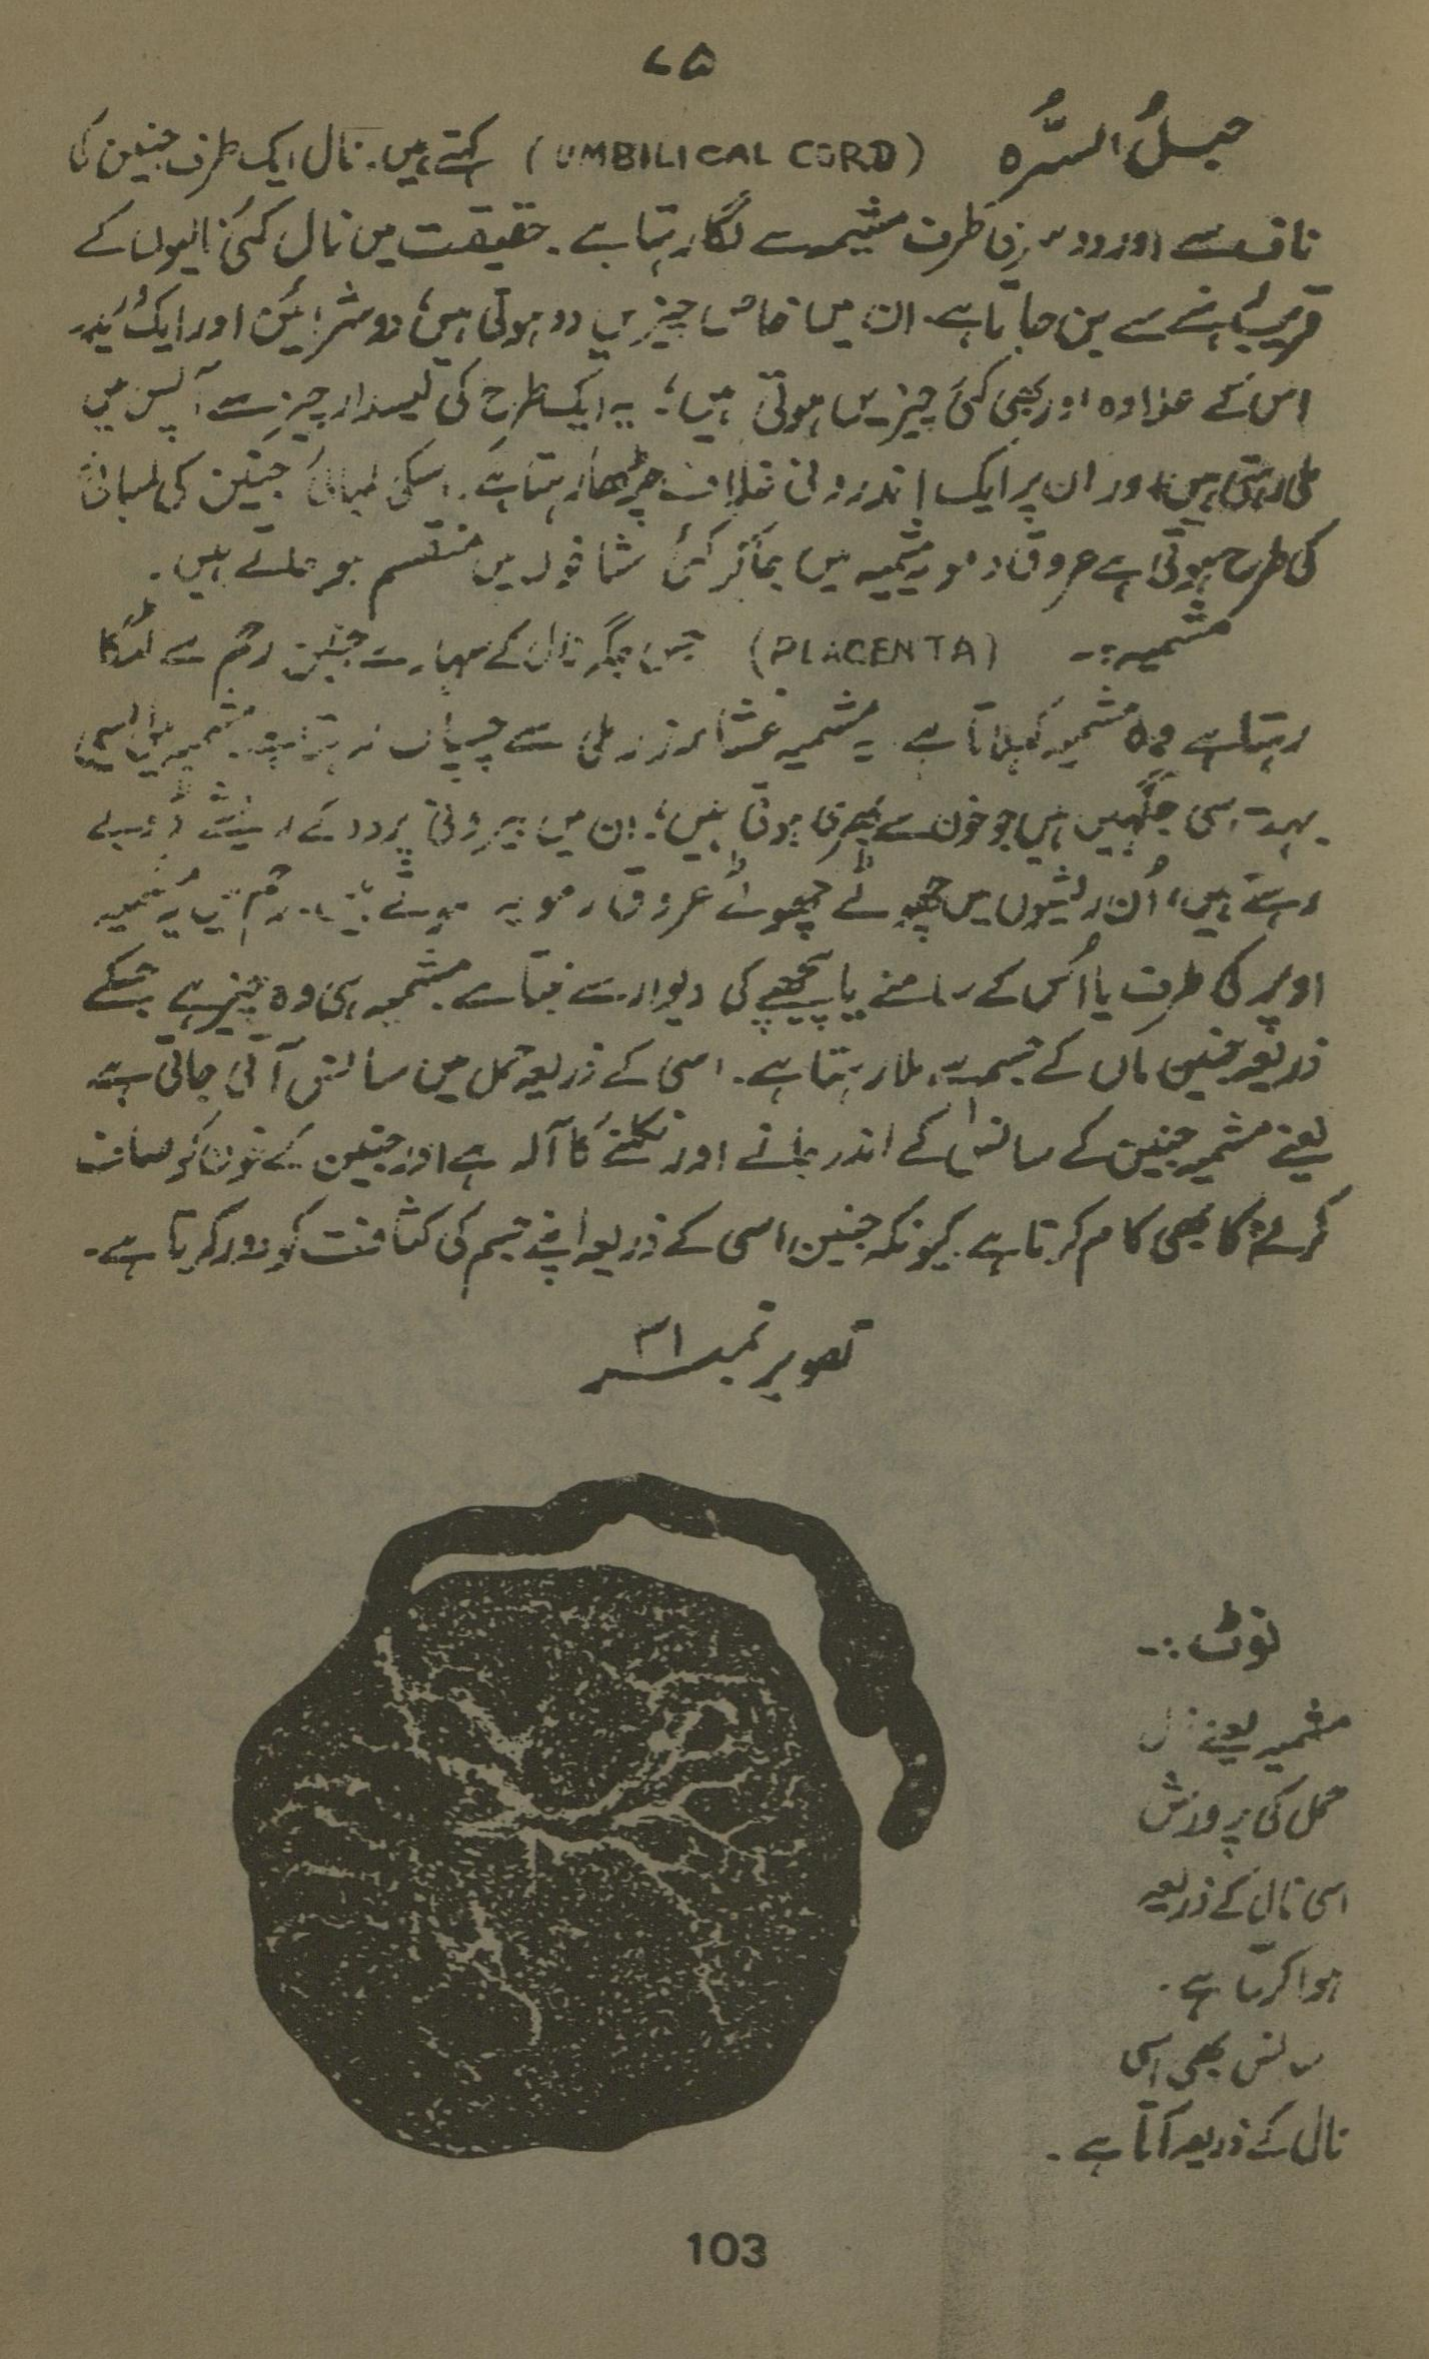 ۷۵
حبلُ السُّرہ (UMBILICAL CORD) کہتے ہیں۔ نال ایک طرف جنین کی
ناف سے اور دوسری طرف مشیمہ سے لگا رہتا ہے۔ حقیقت میں نال کئی نالیوں کے
قریب رہنے سے بن جاتا ہے۔ ان میں خاص چیزیں دو ہوتی ہیں، دو شرائین اور ایک
اس کے علاوہ اور بھی کئی چیزیں ہوتی ہیں؛ یہ ایک طرح کی لیسدار چیز سے آپس میں
ملی رہتی ہیں اور ان پر ایک اندرونی غلاف چڑھا رہتا ہے۔ اسکی لمبائی جنین کی لمبائی
کی طرح ہوتی ہے عروق دمویہ مشمیہ میں جاکر کئی شاخوں میں منقسم ہو جاتے ہیں۔
مشمیہ:۔ (PLACENTA) جس جگہ نال کے سہارے جنین رحم سے لٹکا
رہتا ہے وہ مشمیہ کہلاتا ہے۔ یہ مشمیہ سے چسپاں رہتا ہے۔ مشمیہ میں ایسی
بہت سی جگہیں ہیں جو خون سے بھری ہوتی ہیں؛ ان میں بیرونی پردہ کے ریشے ڈوبے
رہتے ہیں، اُن ریشوں میں چھوٹے چھوٹے عروق دمویہ ہوتے ہیں۔ رحم میں یہ مشمیہ
اوپر کی طرف یا اُس کے سامنے یا پیچھے کی دیوار سے بنتا ہے۔ مشمیہ ہی وہ چیز ہے جسکے
ذریعہ جنین ماں کے جسم سے ملا رہتا ہے۔ اسی کے ذریعہ حمل میں سانس آتی جاتی ہے
یعنے مشمیہ جنین کے سانس کے اندر جانے اور نکلنے کا آلہ ہے اور جنین کے خون کو صاف
کرنے کا بھی کام کرتا ہے۔ کیونکہ جنین اسی کے ذریعہ اپنے جسم کی کثافت کو دور کرتا ہے۔
تصویر نمبر ۳۱
نوٹ:۔
مشمیہ یعنے نال
حمل کی پرورش
اسی نال کے ذریعہ
ہوا کرتا ہے۔
سانس بھی اسی
نال کے ذریعہ آتا ہے۔
103